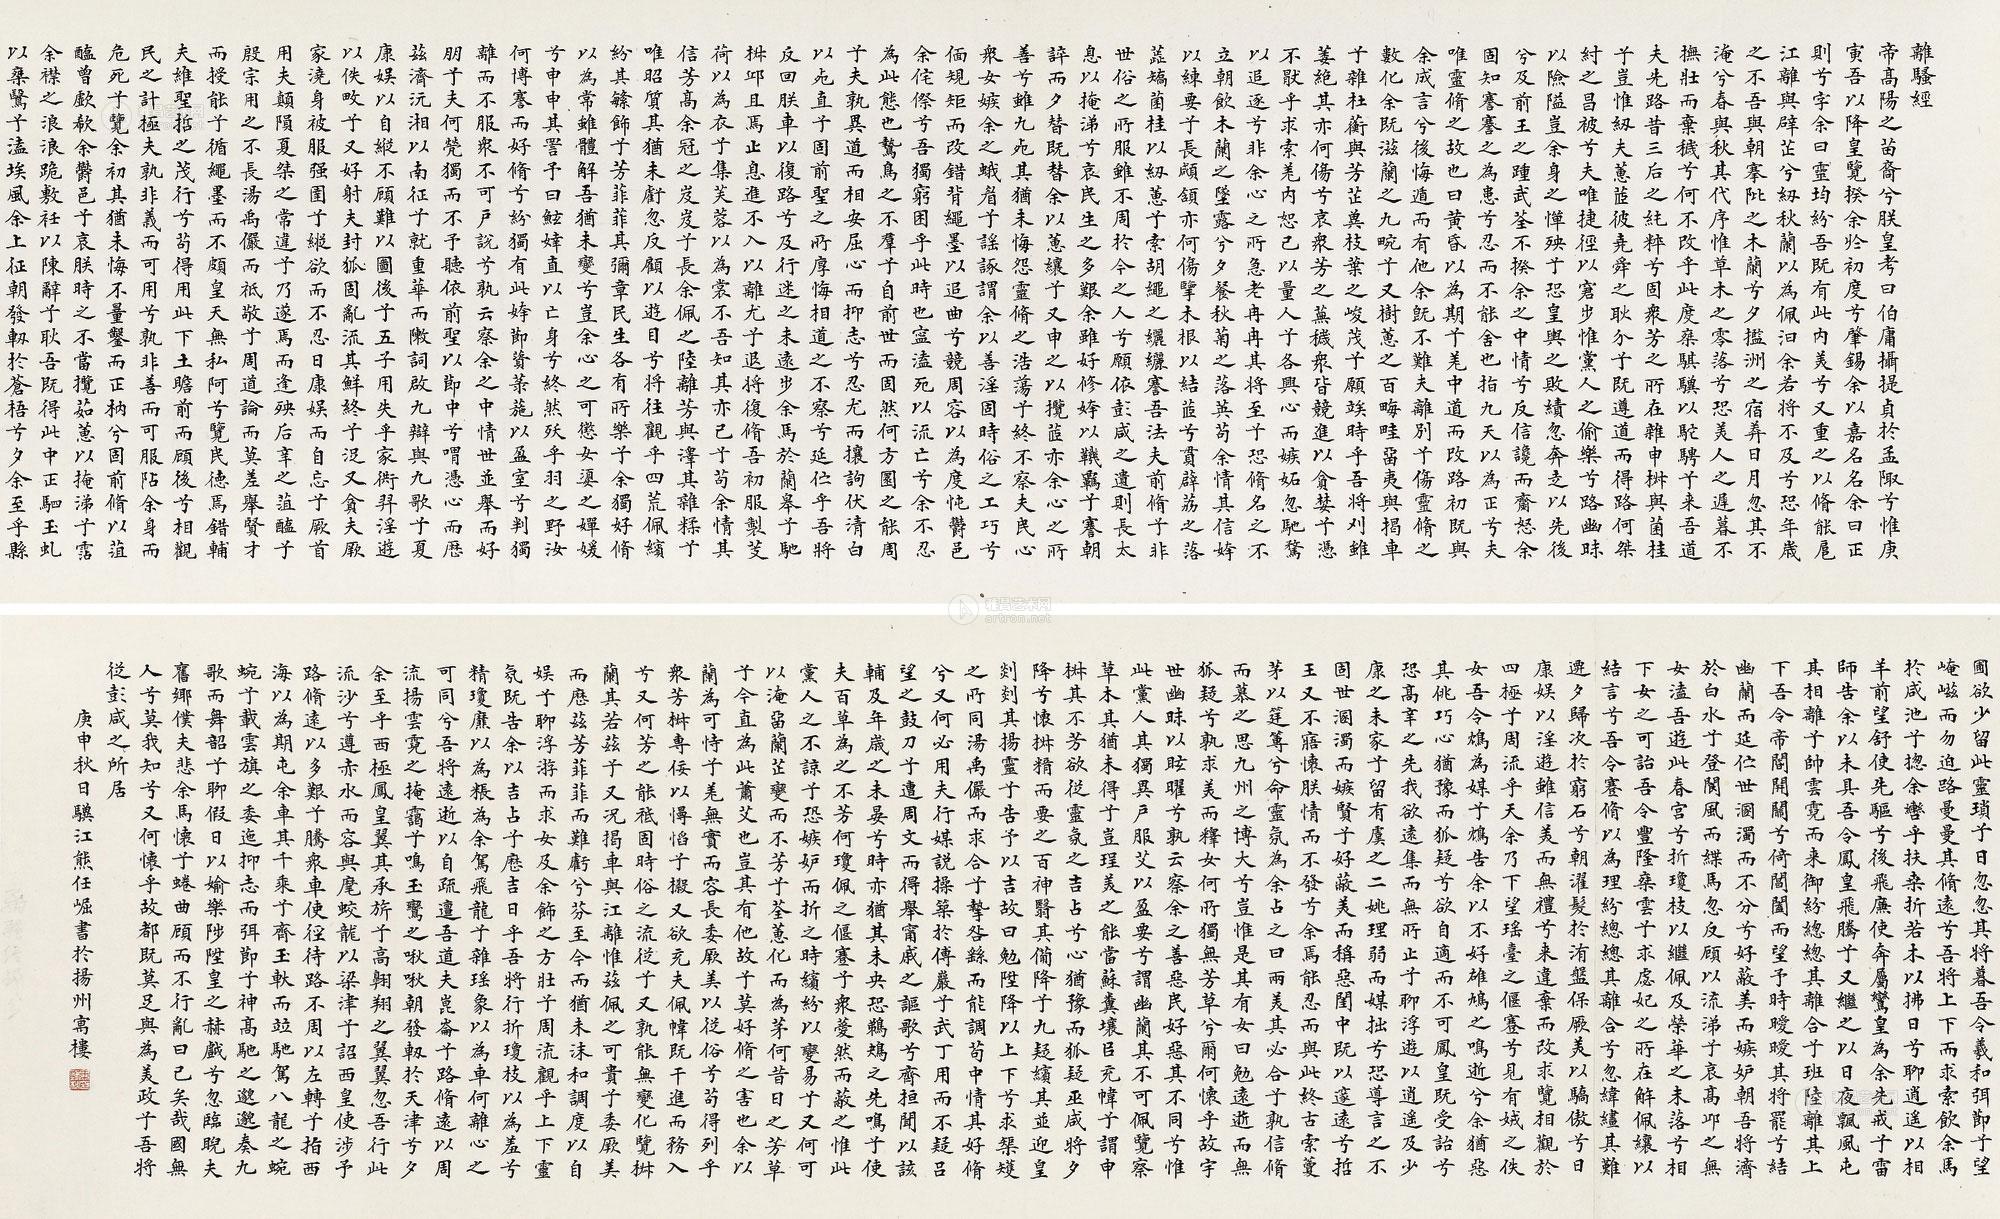 離騷經
帝高陽之苗裔兮朕皇考曰伯庸攝提貞於孟陬兮惟庚
寅吾以降皇覽揆余於初度兮肇錫余以嘉名名余曰正
則兮字余曰靈均紛吾既有此內美兮又重之以脩能扈
江離與辟芷兮紉秋蘭以為佩汩余若將不及兮恐年歲
之不吾與朝搴阰之木蘭兮夕攬洲之宿莽日月忽其不
淹兮春與秋其代序惟草木之零落兮恐美人之遲暮不
撫壯而棄穢兮何不改乎此度乘騏驥以駝騁兮來吾道
夫先路昔三后之純粹兮固衆芳之所在雜申椒與菌桂
兮豈惟紉夫蕙茝彼堯舜之耿介兮既遵道而得路何桀
紂之昌被兮夫唯捷徑以窘步惟黨人之偷樂兮路幽昧
以險隘豈余身之憚殃兮恐皇輿之敗績忽奔走以先後
兮及前王之踵武荃不揆余之中情兮反信讒而齌怒余
固知謇謇之為患兮忍而不能舍也指九天以為正兮夫
唯靈脩之故也曰黃昏以為期兮羌中道而改路初既與
余成言兮後悔遁而有他余既不難夫離別兮傷靈脩之
數化余既滋蘭之九畹兮又樹蕙之百畮畦留夷與揭車
兮雜杜蘅與芳芷冀枝葉之峻茂兮願竢時乎吾將刈雖
萎絕其亦何傷兮哀衆芳之蕪穢衆皆競進以貪婪兮憑
不猒乎求索羌內恕己以量人兮各興心而嫉妬忽馳騖
以追逐兮非余心之所急老冉冉其將至兮恐脩名之不
立朝飲木蘭之墜露兮夕餐秋菊之落英苟余情其信姱
以練要兮長顑頷亦何傷擥木根以結茝兮貫薜荔之落
蕋矯菌桂以紉蕙兮索胡繩之纚纚謇吾法夫前脩兮非
世俗之所服雖不周於今之人兮願依彭咸之遺則長太
息以掩涕兮哀民生之多艱余雖好修姱以鞿羈兮謇朝
誶而夕替既替余以蕙纕兮又申之以攬茝亦余心之所
善兮雖九死其猶未悔怨靈脩之浩蕩兮終不察夫民心
衆女嫉余之蛾眉兮謠諑謂余以善淫固時俗之工巧兮
偭規矩而改錯背繩墨以追曲兮競周容以為度忳鬱邑
余侘傺兮吾獨窮困乎此時也寧溘死以流亡兮余不忍
為此態也鷙鳥之不羣兮自前世而固然何方圜之能周
兮夫孰異道而相安屈心而抑志兮忍尤而攘詢伏清白
以死直兮固前聖之所厚悔相道之不察兮延佇乎吾將
反回朕車以復路兮及行迷之未遠步余馬於蘭皋兮馳
椒邱且焉止息進不入以離尤兮退將復脩吾初服製芰
荷以為衣兮集芙蓉以為裳不吾知其亦已兮苟余情其
信芳高余冠之岌岌兮長余佩之陸離芳與澤其雜糅兮
唯昭質其猶未虧忽反顧以遊目兮將往觀乎四荒佩繽
紛其繁飾兮芳菲菲其彌章民生各有所樂兮余獨好脩
以為常雖體解吾猶未變兮豈余心之可懲女嬃之嬋媛
兮申申其詈予曰鮌婞直以亡身兮終然殀乎羽之野汝
何博謇而好脩兮紛獨有此姱節薋菉葹以盈室兮判獨
離而不服衆不可戶說兮孰云察余之中情世並舉而好
朋兮夫何煢獨而不予聽依前聖以節中兮喟憑心而歷
茲濟沅湘以南征兮就重華而敶詞啟九辯與九歌兮夏
康娛以自縱不顧難以圖後兮五子用失乎家衖羿淫遊
以佚畋兮又好射夫封狐固亂流其鮮終兮浞又貪夫厥
家澆身被服强圉兮縱欲而不忍日康娛而自忘兮厥首
用夫顛隕夏桀之常違兮乃遂焉而逢殃后辛之菹醢兮
殷宗用之不長湯禹儼而祗敬兮周道論而莫差舉賢才
而授能兮循繩墨而不頗皇天無私阿兮覽民德焉錯輔
夫維聖哲之茂行兮苟得用此下土瞻前而顧後兮相觀
民之計極夫孰非義而可用兮孰非善而可服阽余身而
危死兮覽余初其猶未悔不量鑿而正枘兮固前脩以菹
醢曾歔欷余鬱邑兮哀朕時之不當攬茹蕙以掩涕兮霑
余襟之浪浪跪敷衽以陳辭兮耿吾既得此中正駟玉虬
以椉鷖兮溘埃風余上征朝發軔於蒼梧兮夕余至乎縣
圃欲少留此靈瑣兮日忽忽其將暮吾令羲和弭節兮望
崦嵫而勿迫路曼曼其脩遠兮吾將上下而求索飲余馬
於咸池兮揔余轡乎扶桑折若木以拂日兮聊逍遙以相
羊前望舒使先驅兮後飛廉使奔屬鸞皇為余先戒兮雷
師告余以未具吾令鳳皇飛騰兮又繼之以日夜飄風屯
其相離兮帥雲霓而來御紛總總其離合兮班陸離其上
下吾令帝閽開關兮倚閶闔而望予時曖曖其將罷兮結
幽蘭而延佇世溷濁而不分兮好蔽美而嫉妒朝吾將濟
於白水兮登閬風而緤馬忽反顧以流涕兮哀高邱之無
女溘吾遊此春宮兮折瓊枝以繼佩及榮華之未落兮相
下女之可詒吾令豐隆椉雲兮求虙妃之所在解佩纕以
結言兮吾令謇脩以為理紛總總其離合兮忽緯繣其難
遷夕歸次於窮石兮朝濯髮於洧盤保厥美以驕傲兮日
康娛以淫遊雖信美而無禮兮來違棄而改求覽相觀於
四極兮周流乎天余乃下望瑤臺之偃蹇兮見有娀之佚
女吾令鴆為媒兮鴆告余以不好雄鳩之鳴逝兮余猶惡
其佻巧心猶豫而狐疑兮欲自適而不可鳳皇既受詒兮
恐高辛之先我欲遠集而無所止兮聊浮遊以逍遙及少
康之未家兮留有虞之二姚理弱而媒拙兮恐導言之不
固世溷濁而嫉賢兮好蔽美而稱惡閨中既以邃遠兮哲
王又不寤懷朕情而不發兮余焉能忍而與此終古索藑
茅以筳篿兮命靈氛為余占之曰兩美其必合兮孰信脩
而慕之思九州之博大兮豈惟是其有女曰勉遠逝而無
狐疑兮孰求美而釋女何所獨無芳草兮爾何懷乎故宇
世幽昧以眩曜兮孰云察余之善惡民好惡其不同兮惟
此黨人其獨異戶服艾以盈要兮謂幽蘭其不可佩覽察
草木其猶未得兮豈珵美之能當蘇糞壤以充幃兮謂申
椒其不芳欲從靈氛之吉占兮心猶豫而狐疑巫咸將夕
降兮懷椒糈而要之百神翳其備降兮九疑繽其並迎皇
剡剡其揚靈兮告予以吉故曰勉陞降以上下兮求榘矱
之所同湯禹儼而求合兮摯咎繇而能調苟中情其好脩
兮又何必用夫行媒說操築於傅巖兮武丁用而不疑呂
望之鼓刀兮遭周文而得舉甯戚之謳歌兮齊桓聞以該
輔及年歲之未晏兮時亦猶其未央恐鵜鴂之先鳴兮使
夫百草為之不芳何瓊佩之偃蹇兮衆薆然而蔽之惟此
黨人之不諒兮恐嫉妒而折之時繽紛以變易兮又何可
以淹留蘭芷變而不芳兮荃蕙化而為茅何昔日之芳草
兮今直為此蕭艾也豈其有他故兮莫好脩之害也余以
蘭為可恃兮羌無實而容長委厥美以從俗兮苟得列乎
衆芳椒專佞以慢慆兮榝又欲充夫佩幃既干進而務入
兮又何芳之能祗固時俗之流從兮又孰能無變化覽椒
蘭其若茲兮又況揭車與江離惟茲佩之可貴兮委厥美
而歷茲芳菲菲而難虧兮芬至今而猶未沬和調度以自
娛兮聊浮游而求女及余飾之方壯兮周流觀乎上下靈
氛既告余以吉占兮歷吉日乎吾將行折瓊枝以為羞兮
精瓊爢以為粻為余駕飛龍兮雜瑤象以為車何離心之
可同兮吾將遠逝以自疏邅吾道夫崑崙兮路脩遠以周
流揚雲霓之掩靄兮鳴玉鸞之啾啾朝發軔於天津兮夕
余至乎西極鳳皇翼其承旂兮高翺翔之翼翼忽吾行此
流沙兮遵赤水而容與麾蛟龍以梁津兮詔西皇使涉予
路脩遠以多艱兮騰衆車使徑待路不周以左轉兮指西
海以為期屯余車其千乘兮齊玉軑而竝馳駕八龍之蜿
蜿兮載雲旗之委迤抑志而弭節兮神高馳之邈邈奏九
歌而舞韶兮聊假日以媮樂陟陞皇之赫戲兮忽臨睨夫
舊鄉僕夫悲余馬懷兮蜷曲顧而不行亂曰已矣哉國無
人兮莫我知兮又何懷乎故都既莫足與為美政兮吾將
從彭咸之所居
庚申秋日驥江熊任崛書於揚州寓樓